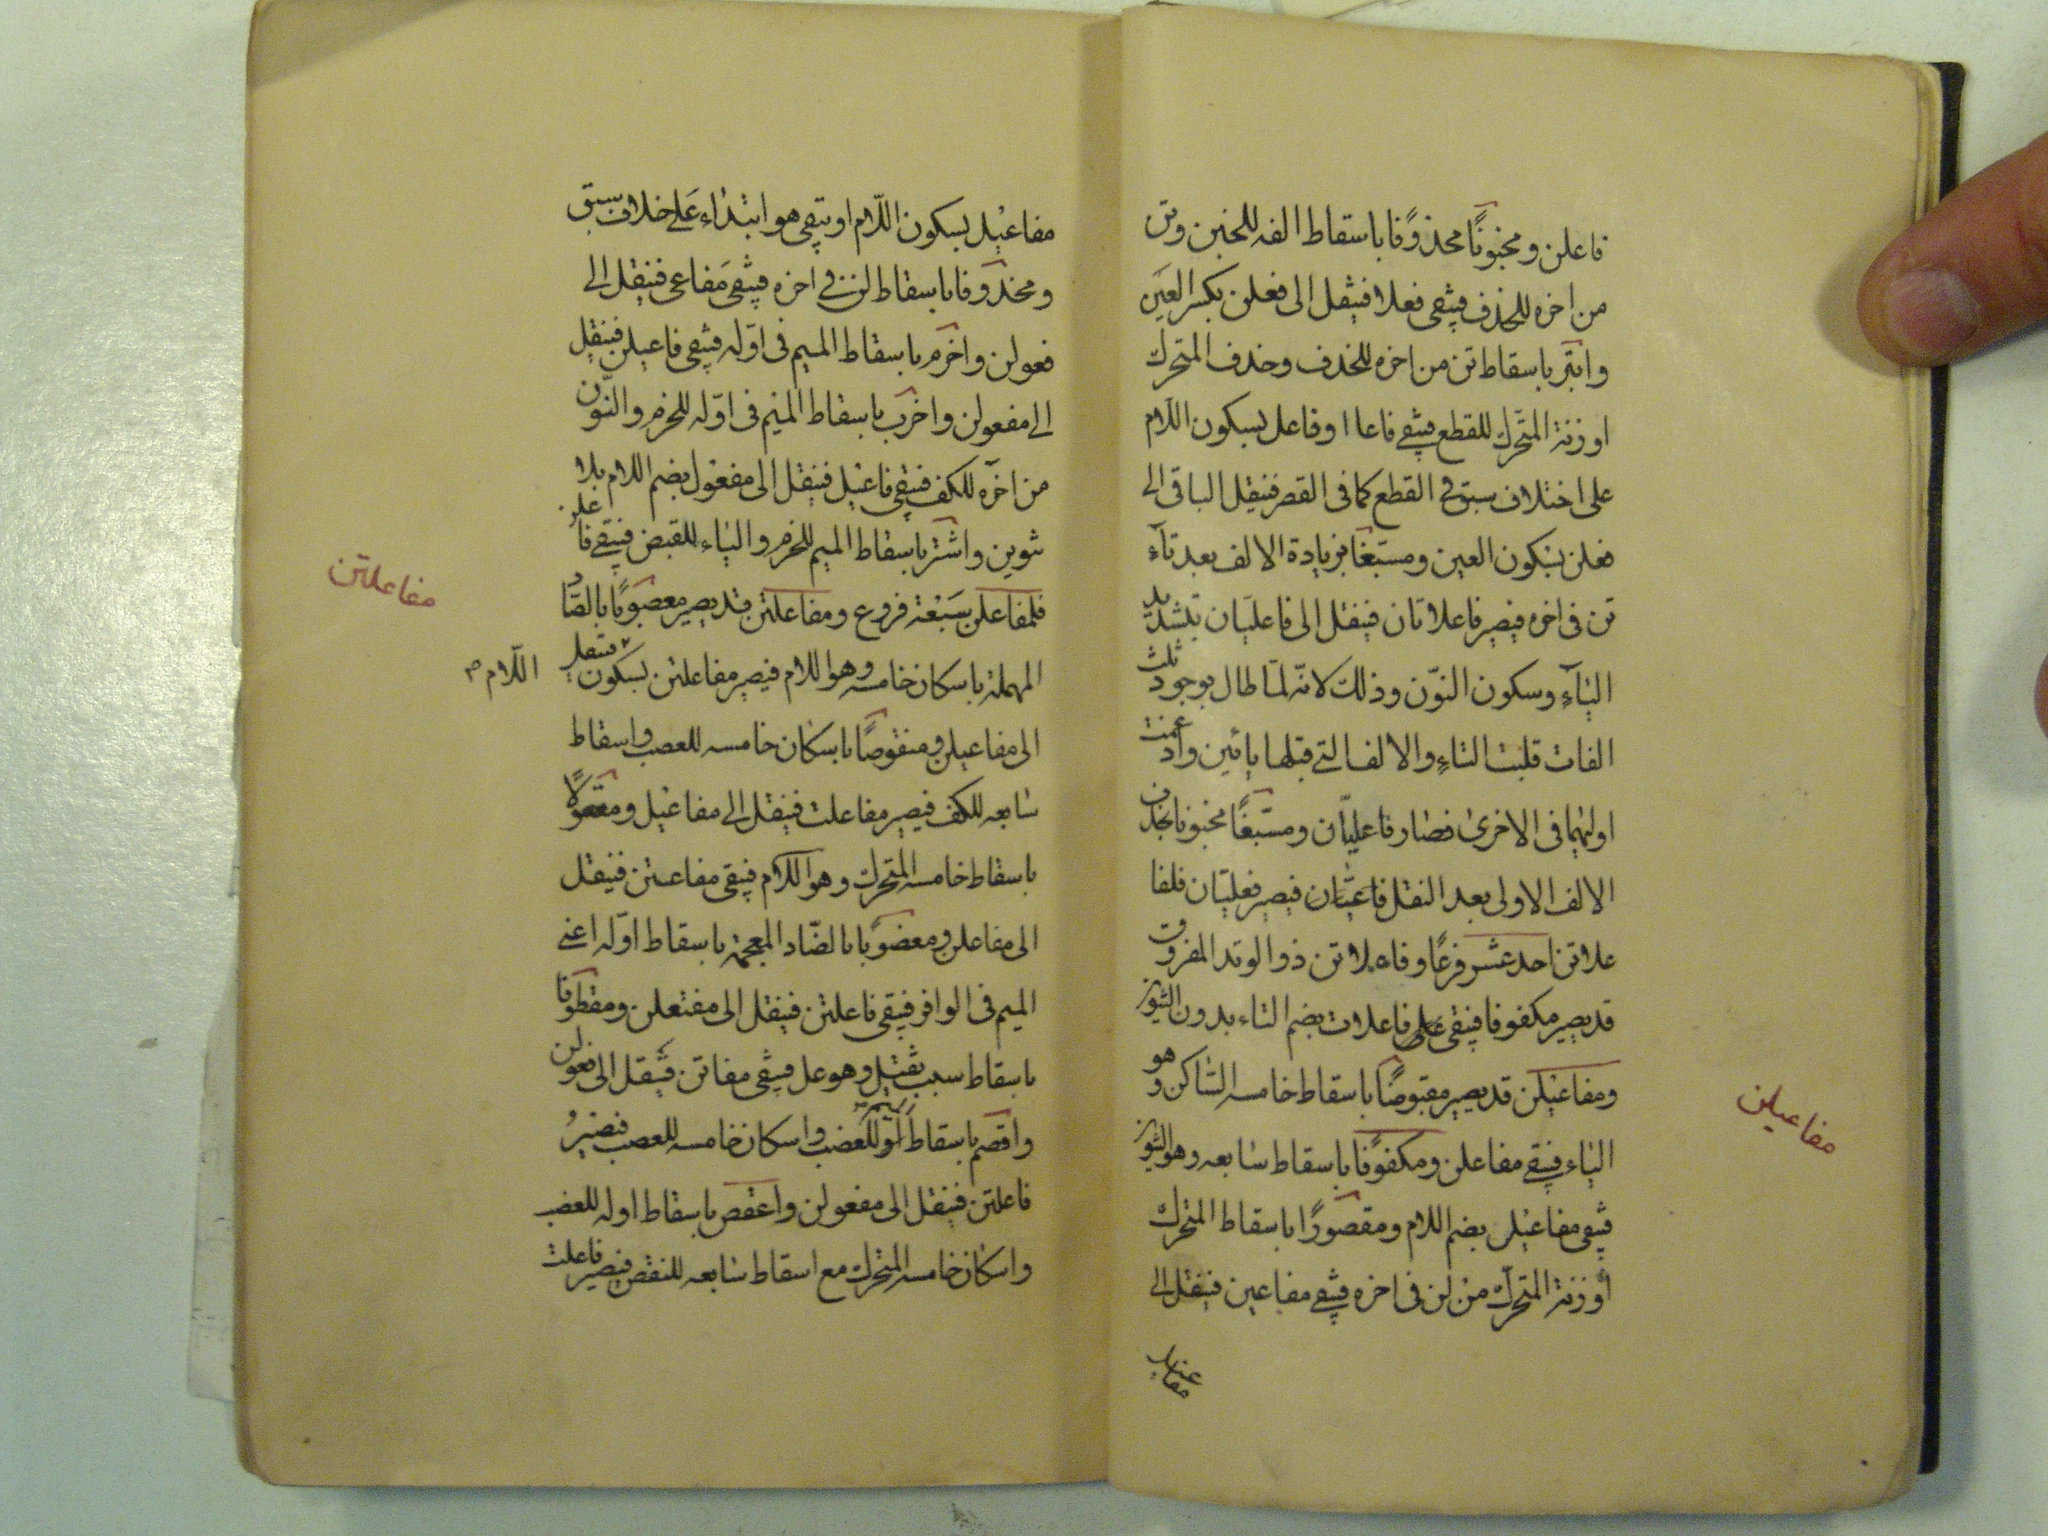 فاعلن ومخبونًا محذوفًا باسقاط الفه للخبن وتن
من اخره للحذف فيبقى فعلا فينقل الى فعلن بكسر العين
وابتر باسقاط تن من اخره للحذف وحذف المتحرك
او زنة المتحرك للقطع فيبقى فاعا او فاعل بسكون اللام
على اختلاف سبق فى القطع كما فى القصر فنيقل الباقى الى
فعلن بسكون العين ومسبّغا بزيادة الالف بعد تآء
تن فى اخره فيصير فاعلاتان فينقل الى فاعليان بتشديد
اليآء وسكون النوّن وذلك لانّه لمّا طال بوجود ثلث
الفات قلبت التاء والالف التى قبلها يائين وادغمت
اوليهما فى الاخرى فصار فاعليّان ومسبّغًا مخبونا بحذف
الالف الاولى بعد النقل فاعتيان فيصير فعليّان فلفا
علاتن احد عشر فرعًا وفاع لاتن ذو الوتد المفروق
قد يصير مكفوفا فيبقى على فاعلات بضم التاء بدون التنوين
ومفاعيلن قد يصير مقبوضًا باسقاط خامسه السّاكن وهو
الياء فيبقى مفاعلن ومكفوفًا باسقاط سابعه وهو النون
فيبقى مفاعيل بضم اللام ومقصورًا باسقاط المتحرك
أو زنة المتحرك من لن فى اخره فيبقى مفاعين فينقل الى
مفاعيل
مفاعيلن
مفاعيل بسكون اللّام او يبقى هو ابتداء على خلاف سبق
ومحذوفا باسقاط لن فى اخره فيبقى مفاعى فينقل الى
فعولن واخرم باسقاط الميم فى اوّله فيبقى فاعيلن فينقل
الى مفعولن واخرب باسقاط الميم فى اوّله للخرم والنّون
من اخره للكف فيبقى فاعيل فينقل الى مفعول بضم اللام بلا
تنوين واشتر باسقاط الميم للخرم والياء للقبض فيبقى فاعلن
فلمفاعلن سبعة فروع ومفاعلتن قد يصير معصوبًا بالصّاد
المهملة باسكان خامسه وهو اللام فيصير مفاعلتن بسكون فينقل
اللّام
الى مفاعيلن ومنقوصًا باسكان خامسه للعصب واسقاط
سابعه للكف فيصير مفاعلت فينقل الى مفاعيل ومعقولًا
باسقاط خامسه المتحرك وهو اللام فيبقى مفاعتن فنيقل
الى مفاعلن ومعضوبا بالضّاد المعجمة باسقاط اوّله اعنى
الميم فى الوافر فيبقى فاعلتن فينقل الى مفتعلن ومقطوفا
باسقاط سبب ثقيل وهو عل فيبقى مفاتن فينقل الى فعولن
واقصم باسقاط اوّله للعضب واسكان خامسه للعصب فيصير
فاعلتن فينقل الى مفعولن واعقص باسقاط اوله للعضب
واسكان خامسه المتحرك مع اسقاط سابعه للنقص فيصير فاعلت
مفاعلتن